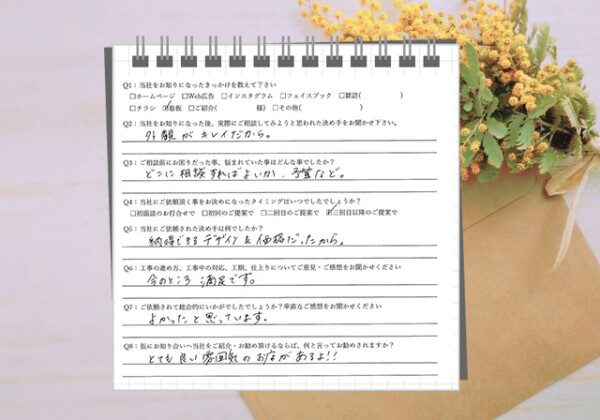 Q1：当社をお知りになったきっかけを教えて下さい
□ホームページ □Web広告 □インスタグラム □フェイスブック □雑誌( )
□チラシ ☑看板 □ご紹介( 様) □その他( )
Q2：当社をお知りになった後、実際にご相談してみようと思われた決め手をお聞かせ下さい。
外観がキレイだから。
Q3：ご相談前にお困りだった事、悩まれていた事はどんな事でしたか？
どこに相談すればよいか、予算など。
Q4：当社にご依頼頂く事をお決めになったタイミングはいつでしたでしょうか？
□初面談のお打合せで □初回のご提案で □二回目のご提案で ☑三回目以降のご提案で
Q5：当社に依頼された決め手は何でしたか？
納得できるデザイン&価格だったから。
Q6：工事の進め方、工事中の対応、工期、仕上りについてご意見・ご感想をお聞かせください
今のところ満足です。
Q7：ご依頼されて総合的にいかがでしたでしょうか？率直なご感想をお聞かせください
よかったと思っています。
Q8：仮にお知り合いへ当社をご紹介・お勧め頂けるならば、何と言ってお勧めされますか？
とても良い雰囲気のお店があるよ!!